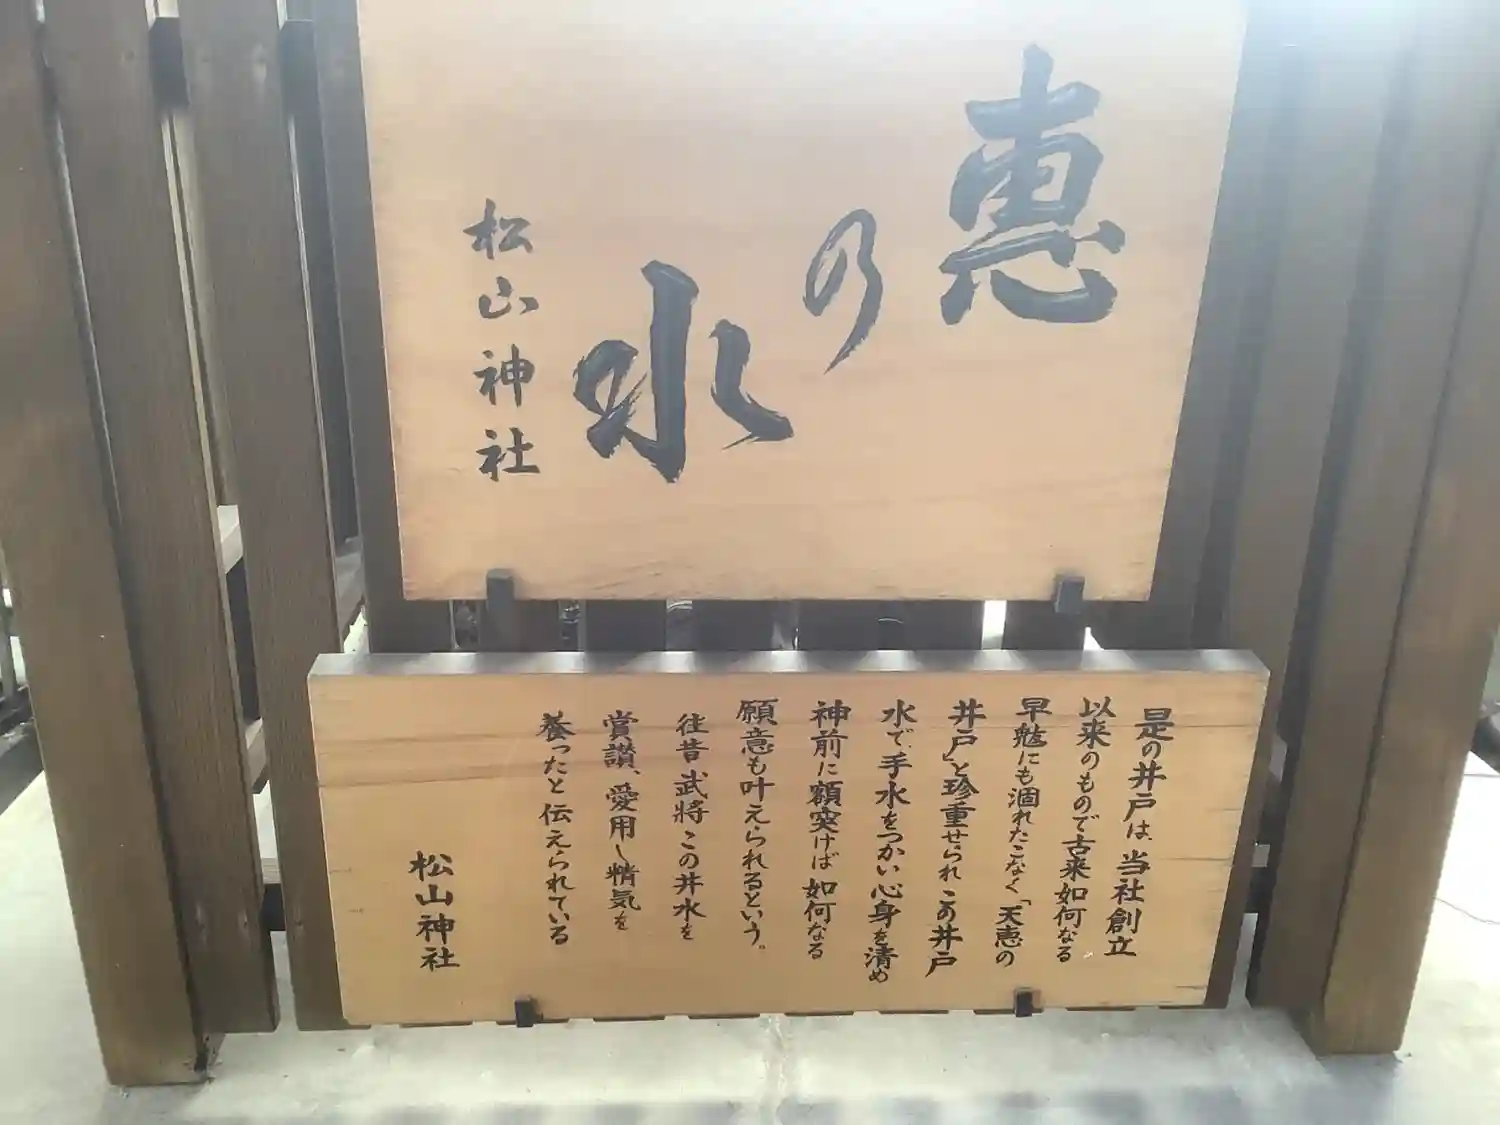 恵の水
松山神社
是の井戸は、当社創立
以来のもので古来如何なる
旱魃にも涸れたこなく「天恵の
井戸」と珍重せられこの井戸
水で、手水をつかい心身を清め
神前に額突けば如何なる
願意も叶えられるという。
往昔武将この井水を
賞讃、愛用し精気を
養ったと伝えられている
松山神社